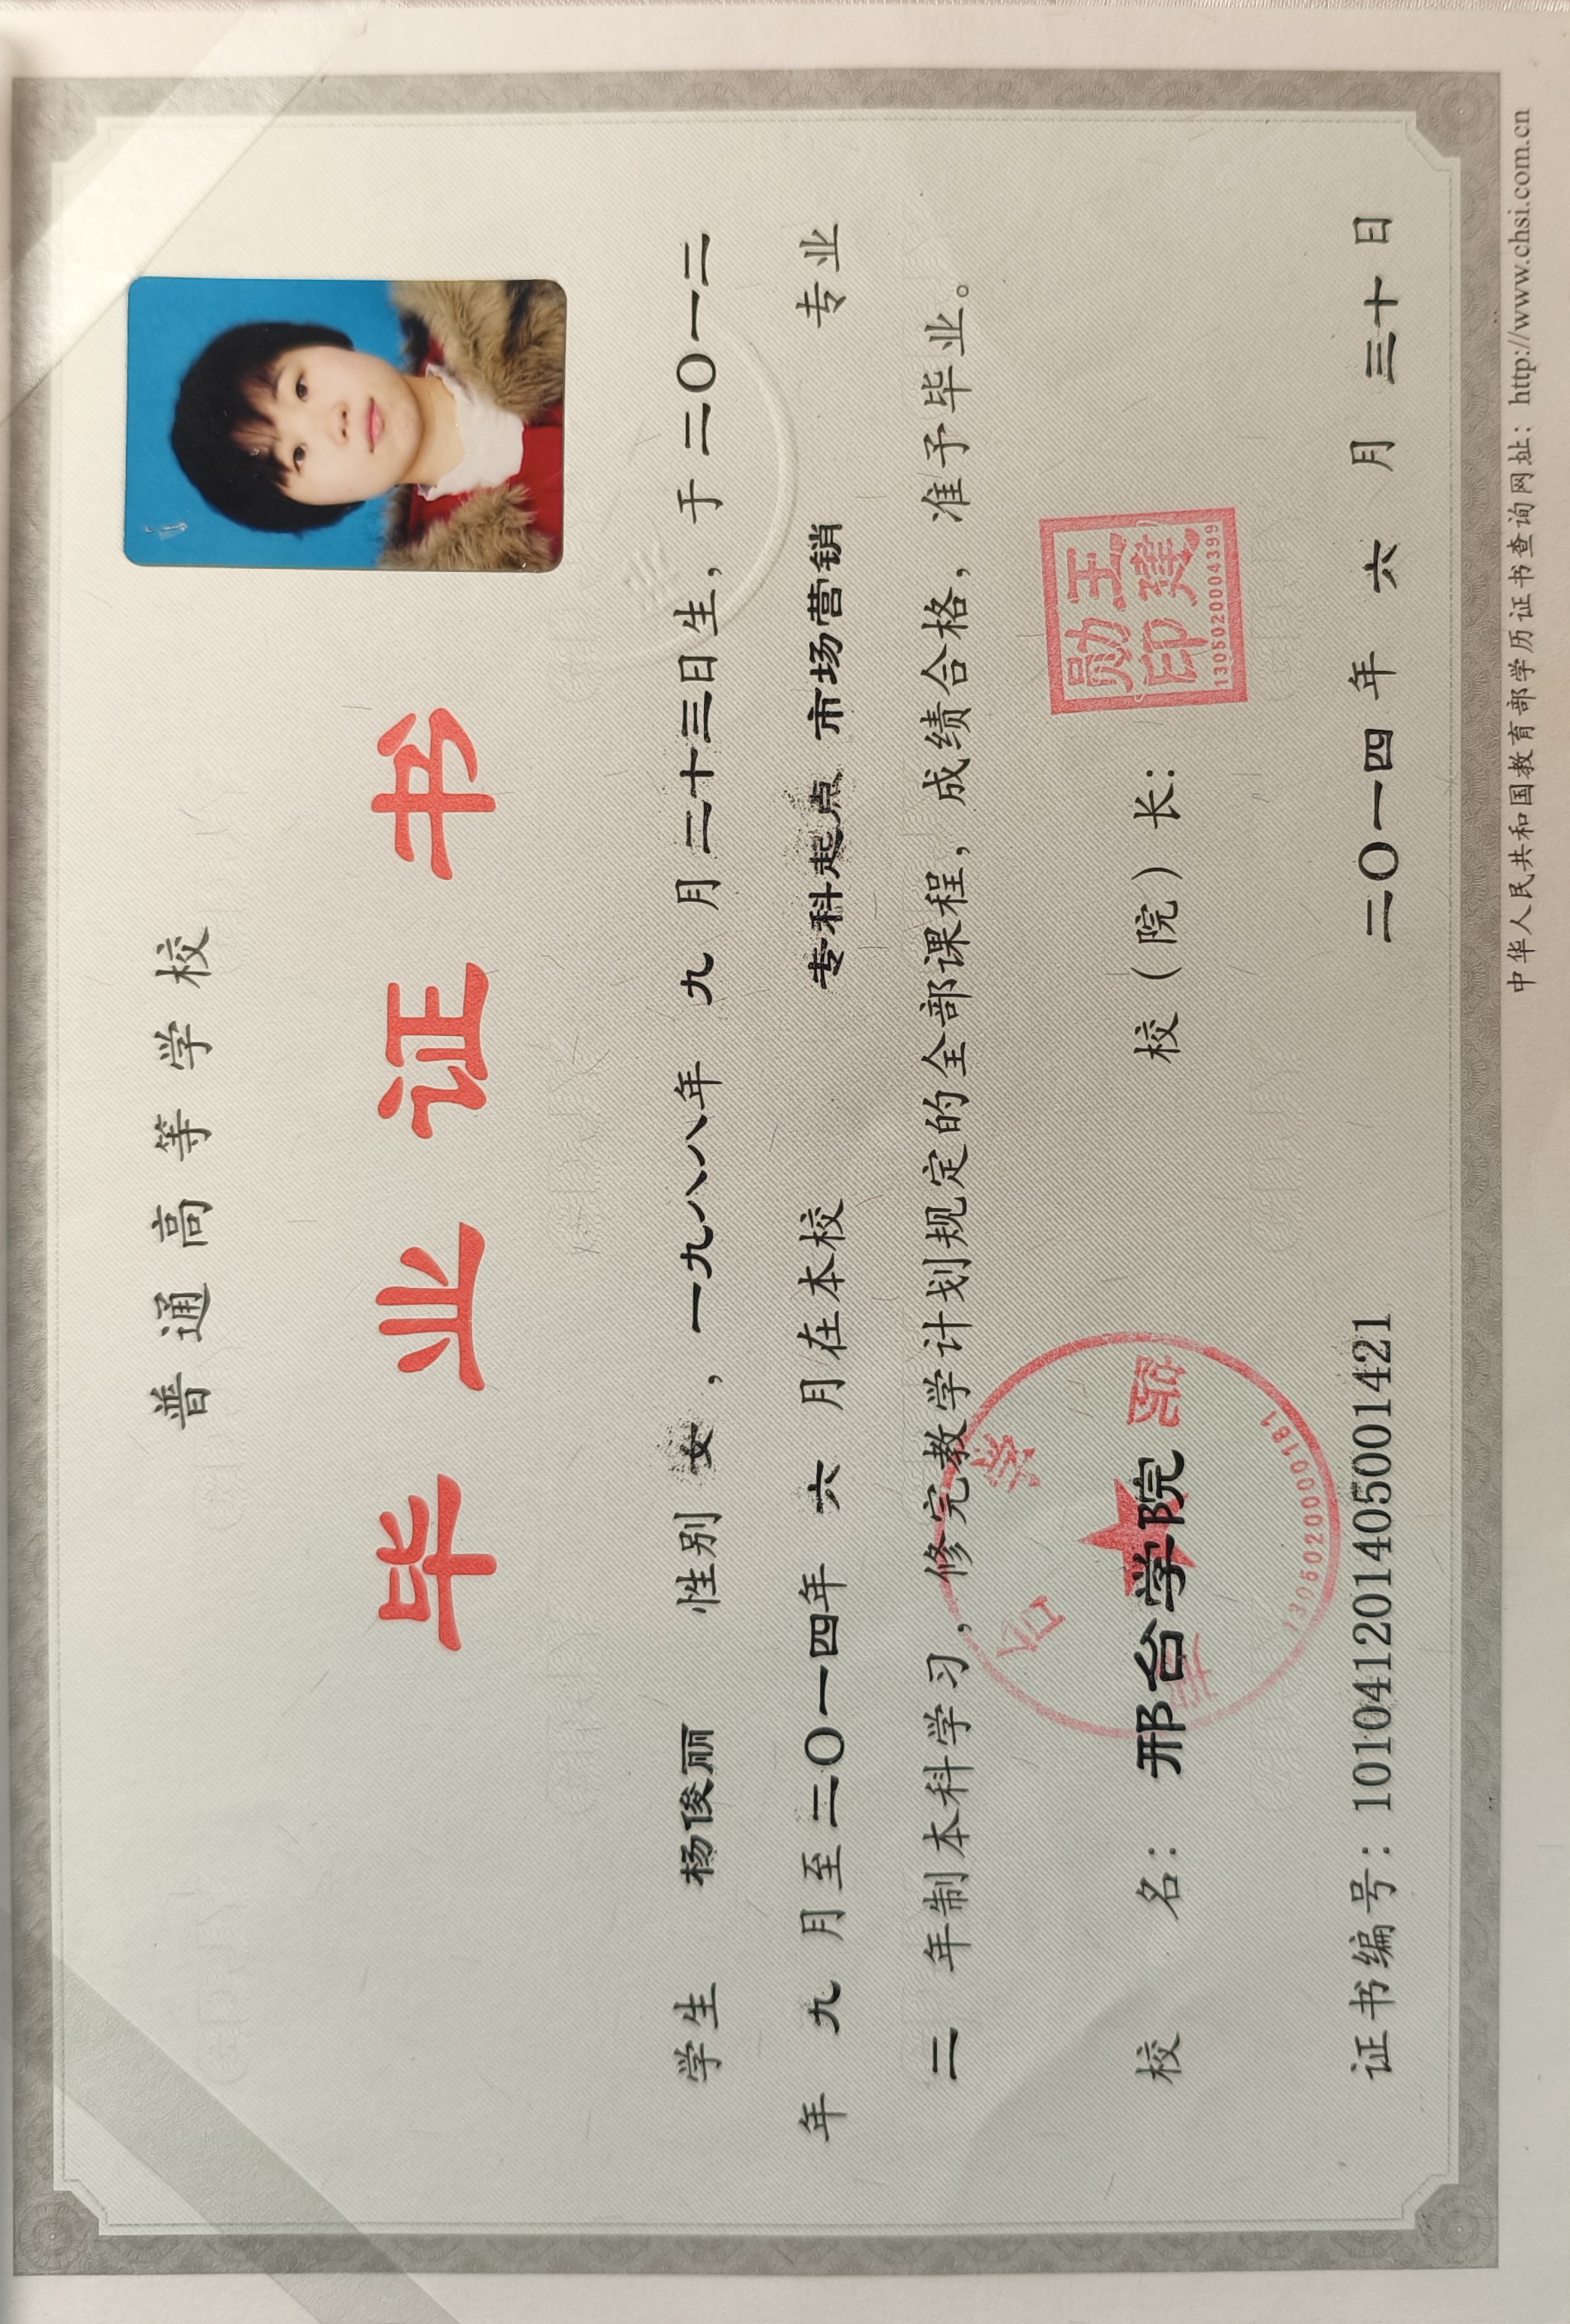 普通高等学校
毕业证书
学生 杨俊丽 性别 女，一九八八年 九 月二十三日生，于二〇一二
年 九 月至二〇一四年 六 月在本校 专科起点 市场营销 专业
二 年制本科学习，修完教学计划规定的全部课程，成绩合格，准予毕业。
校 名：邢台学院 校（院）长：
王建勋印
1305020004399
1305020000181
证书编号：101041201405001421 二〇一四 年 六 月 三十 日
中华人民共和国教育部学历证书查询网址：http://www.chsi.com.cn